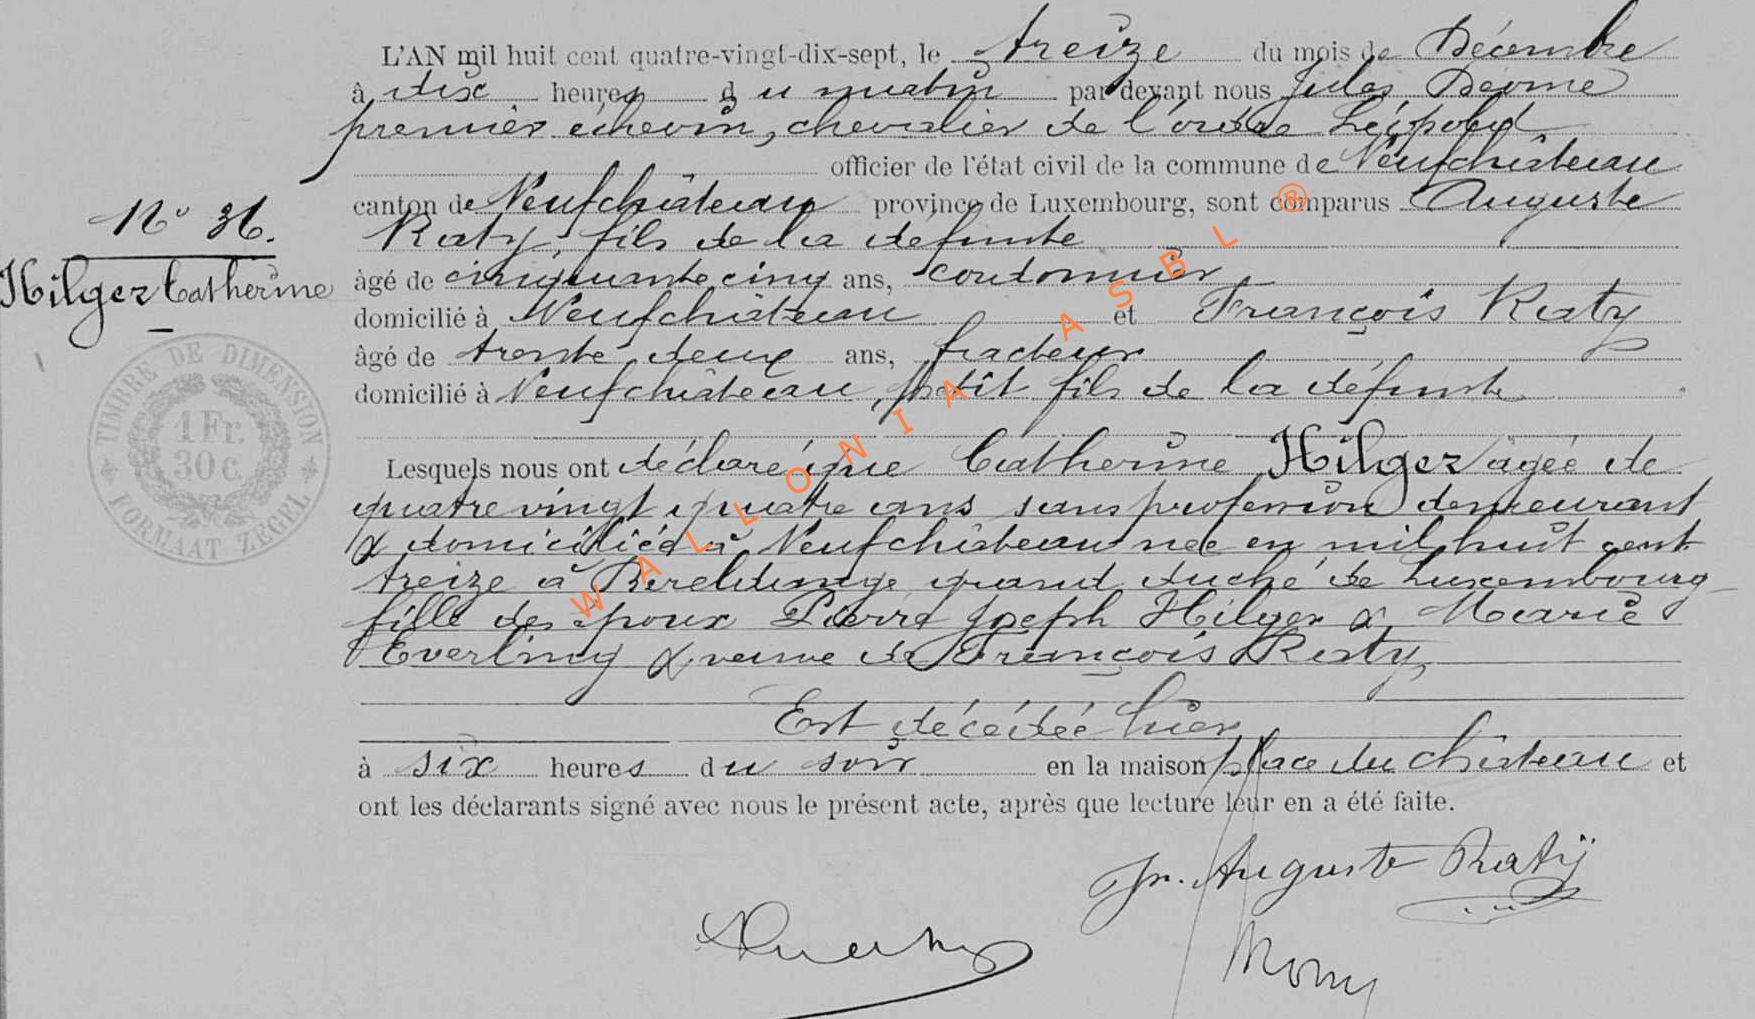 L'AN mil huit cent quatre-vingt-dix-sept, le treize du mois de Décembre
à dix heures du matin par devant nous Jules
premier échevin, chevalier de l'ordre Léopold
officier de l'état civil de la commune de Neufchâteau
canton de Neufchâteau province de Luxembourg, sont comparus Auguste
Raty, fils de la défunte
âgé de cinquante cinq ans, cordonnier
domicilié à Neufchâteau et François Raty
âgé de trente deux ans, facteur
domicilié à Neufchâteau, petit fils de la défunte
Nº 36.
Hilger Catherine
TIMBRE DE DIMENSION
1 Fr.
30 C.
FORMAAT ZEGEL
Lesquels nous ont déclaré que Catherine Hilger agée de
quatre vingt quatre ans sans profession demeurant
& domiciliée à Neufchâteau née en mil huit cent
treize à Bereldange grand duché de Luxembourg
fille des époux Pierre Joseph Hilger & Marie
Everling & veuve de François Raty
Est décédée hier
à six heures du soir en la maison place du château et
ont les déclarants signé avec nous le présent acte, après que lecture leur en a été faite.
Auguste Raty
WALLONIA ASBL ®